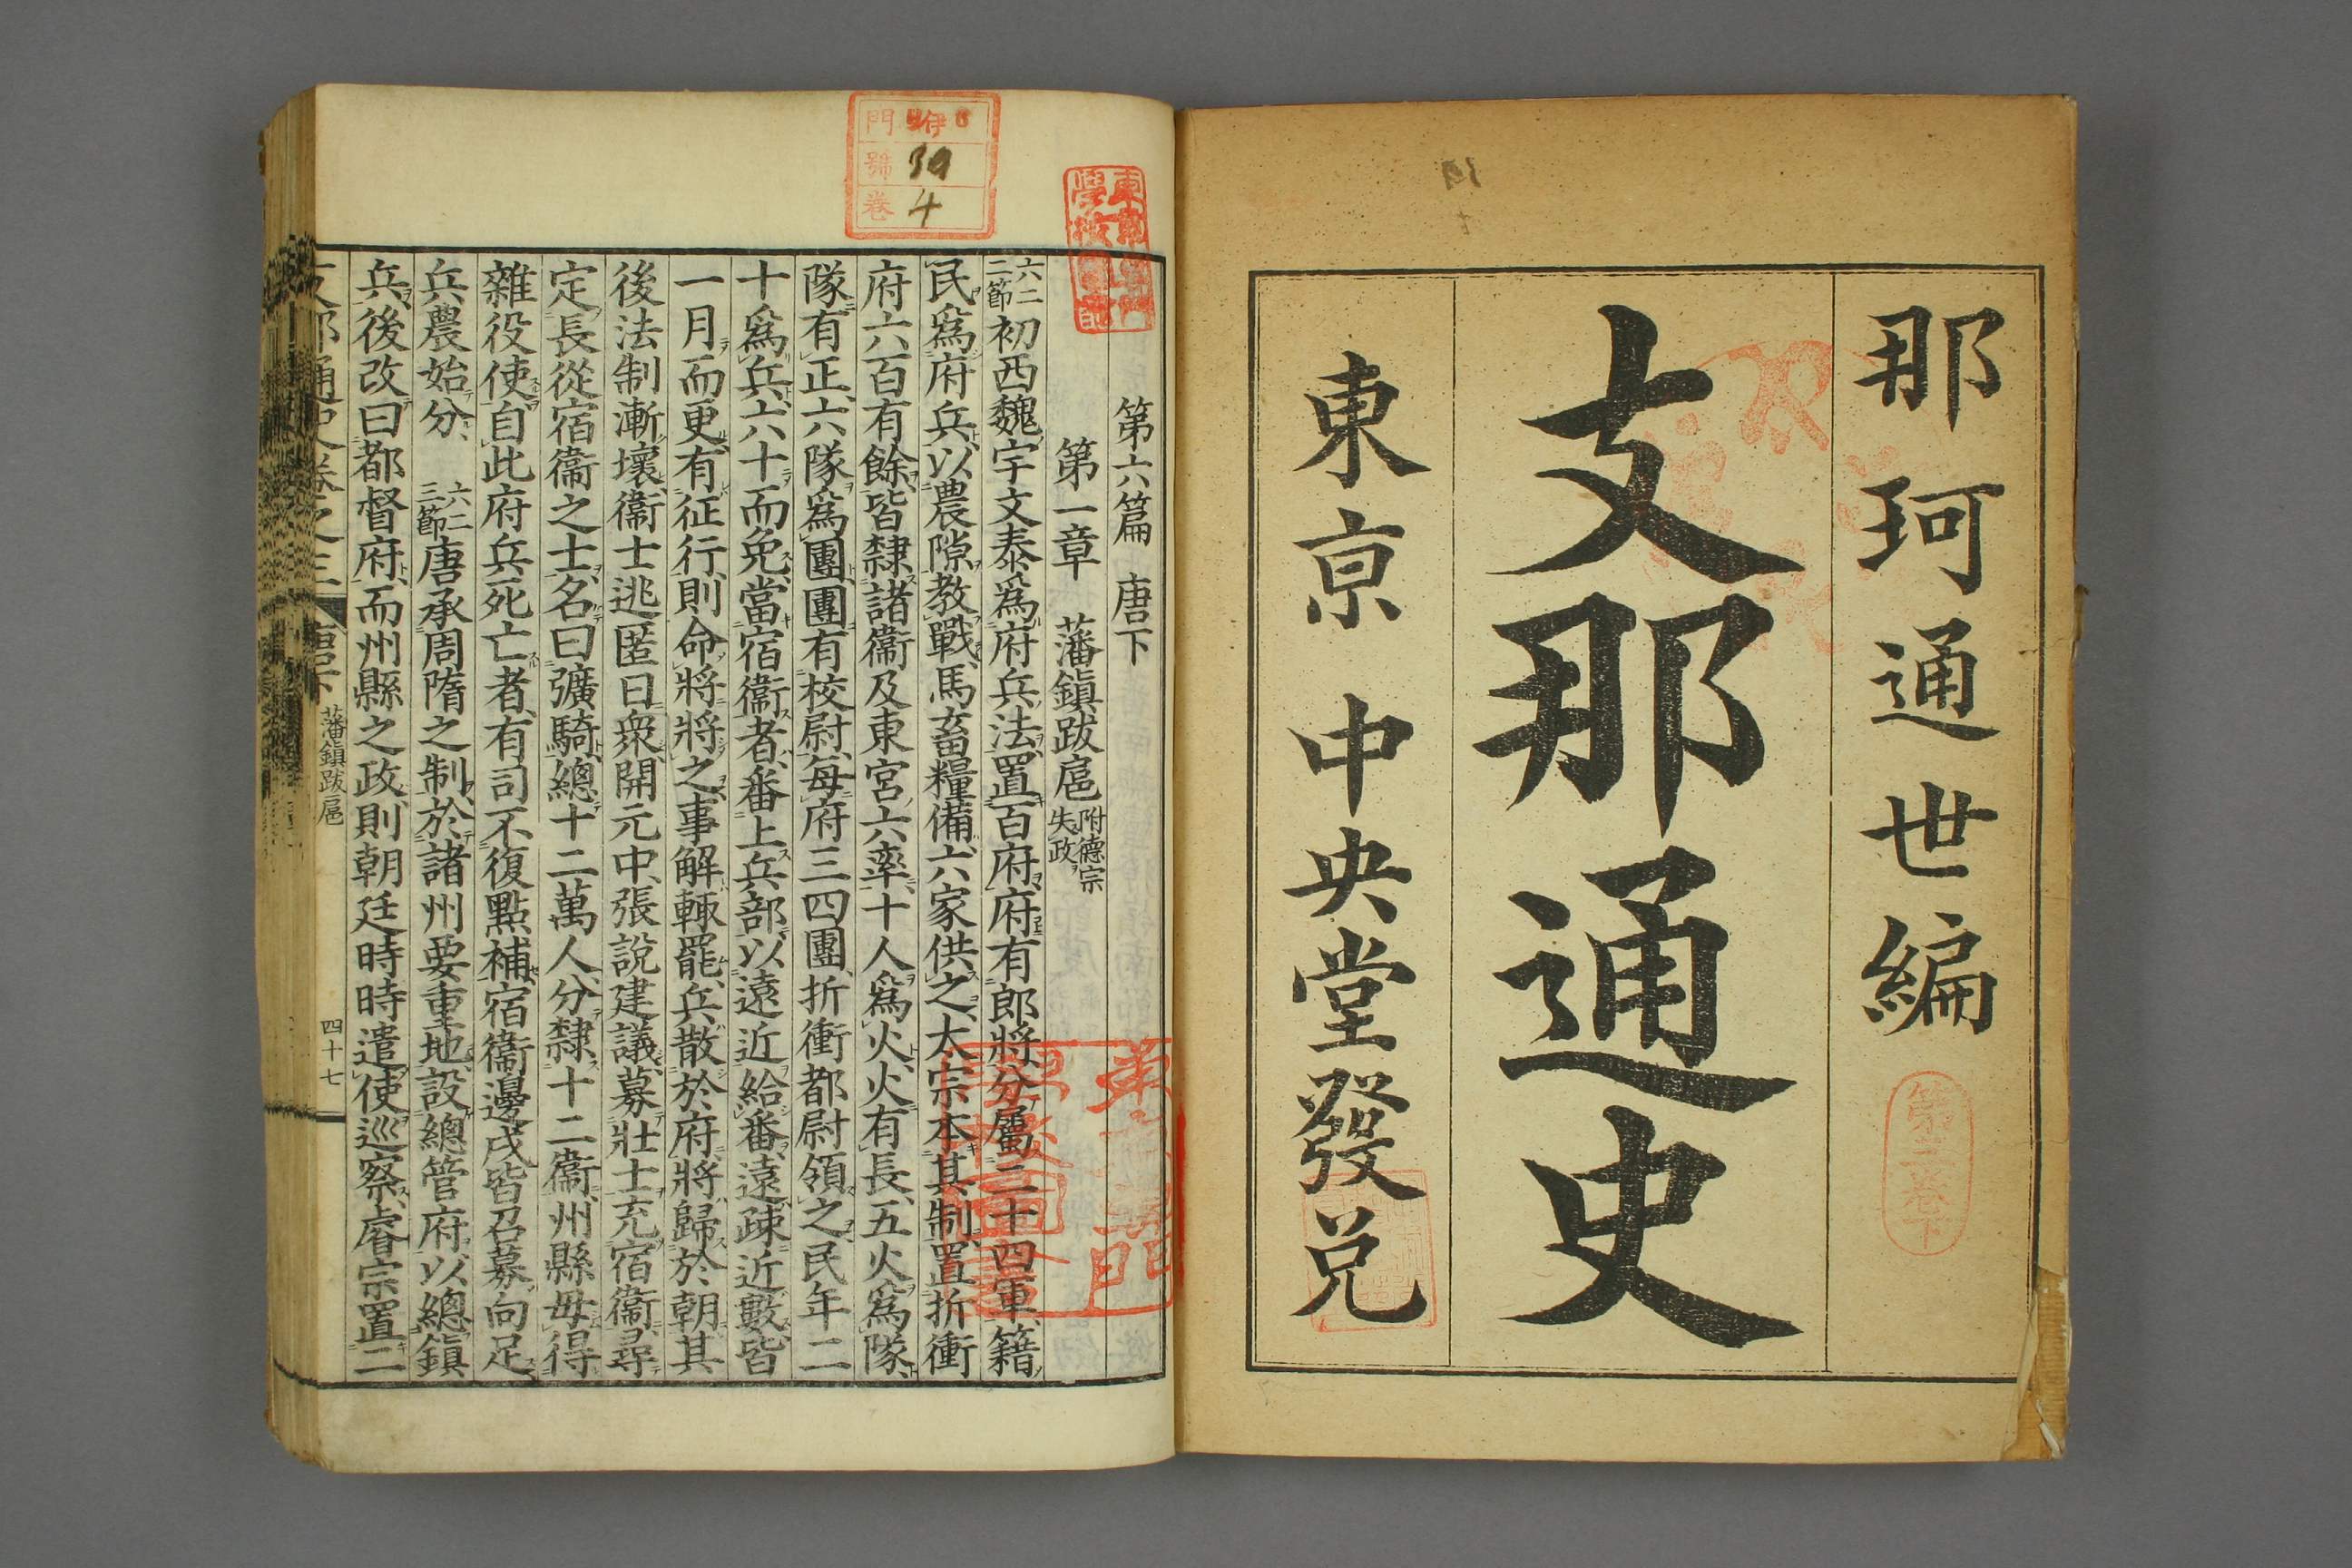 那珂通世編
支那通史
東京中央堂發兌
第三卷下
第六篇 唐下
第一章 藩鎭跋扈 附德宗失政
六二二節 初西魏宇文泰爲府兵法、置百府、府有郎將、分屬二十四軍、籍
民爲府兵、以農隙教戰、馬畜糧備、六家供之、太宗本其制、置折衝
府六百有餘、皆隸諸衞及東宮六率、十人爲火、火有長、五火爲隊、
隊有正、六隊爲團、團有校尉、每府三四團、折衝都尉領之、民年二
十爲兵、六十而免、當宿衞者、番上兵部、以遠近給番、遠疎近數、皆
一月而更、有征行、則命將將之、事解輒罷、兵散於府、將歸於朝、其
後法制漸壞、衞士逃匿日衆、開元中、張說建議、募壯士充宿衞、尋
定長從宿衞之士、名曰彍騎、總十二萬人、分隸十二衞、州縣毋得
雜役使、自此府兵死亡者、有司不復點補、宿衞邊戍皆召募、向足
兵農始分、 六二三節 唐承周隋之制、於諸州要重地、設總管府、以總鎭
兵、後改曰都督府、而州縣之政、則朝廷時時遣使巡察、睿宗置二
支那通史卷之三 唐下 藩鎭跋扈 四十七
門 伊
號 39
卷 4